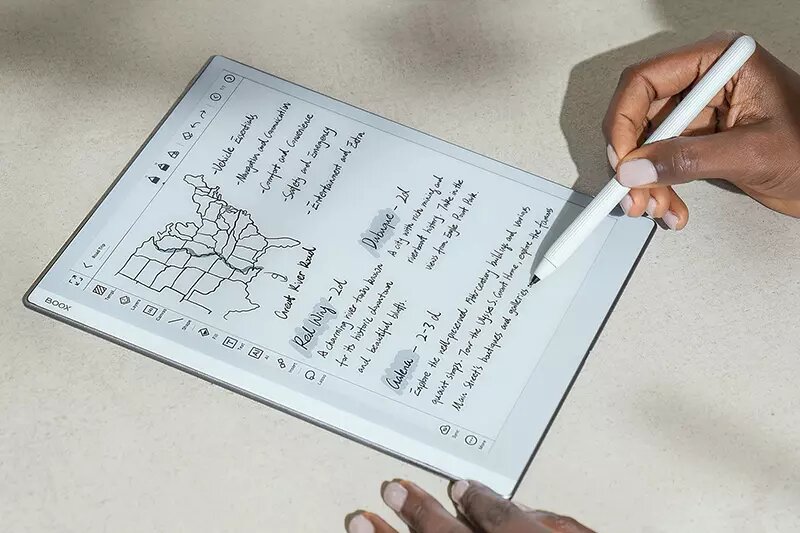 BOOX
Road Trip
Layers
Shape
Fill
Text
AI
Insert
Lasso
Sync
More
- Vehicle Essentials
- Navigation and Communication
- Comfort and Convenience
- Safety and Emergency
- Entertainment and Extra
Great River Road
Red Wing - 2d
A charming river town known
for its historic downtown
and beautiful bluffs
Dubuque - 2d
A city with rich mining and
riverboat history. Take in the
views from Eagle Point Park.
Galena - 2-3 d
Explore the well-preserved 19th-century buildings and various
quaint shops. Tour the Ulysses S. Grant Home, explore the famous
Main Street's boutiques and galleries